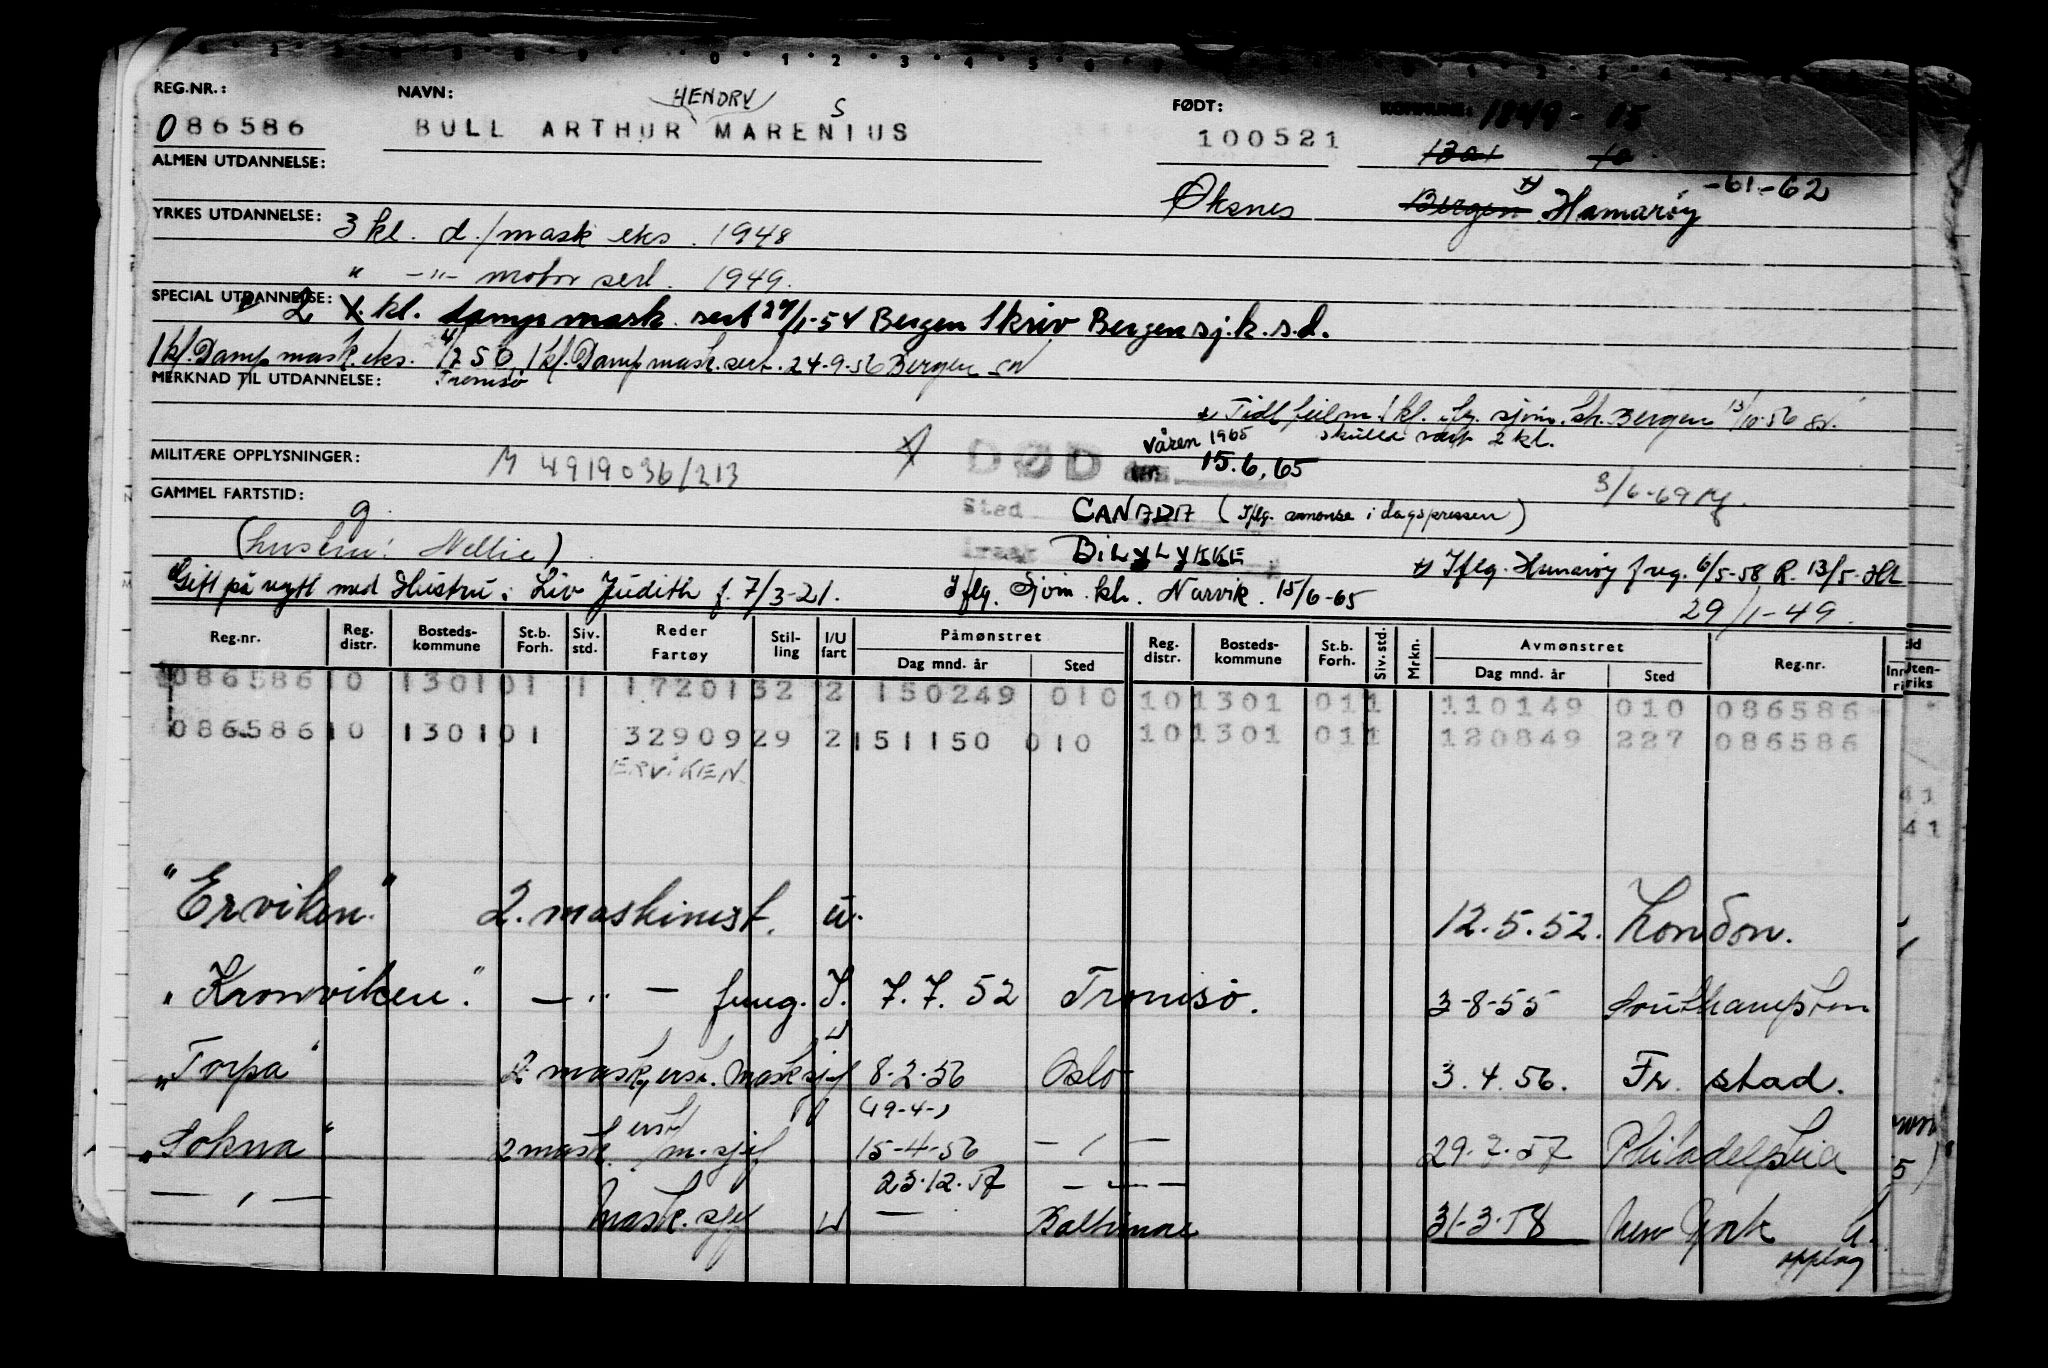 REG.NR.: NAVN: HENDRY S FØDT: KOMMUNE: 1849 - 15
086586 BULL ARTHUR MARENIUS 100521 1301 10
ALMEN UTDANNELSE:
Øksnes Bergen x) Hamarøy -61-62
YRKES UTDANNELSE: 3 kl. d./mask eks. 1948
" -"- motor sert. 1949.
SPECIAL UTDANNELSE: 2 kl. damp mask. sert 27/1-54 Bergen Skriv Bergen sj.k. s.d.
1 kl. Damp mask. eks. 4/7 50, 1 kl. Damp mask. sert. 24-9-56 Bergen
MERKNAD TIL UTDANNELSE: Tromsø
x Tidl feilm. 1 kl. iflg. sjøm. kh. Bergen 13/10-56
våren 1965 skulle vært 2 kl.
MILITÆRE OPPLYSNINGER: M 4919036/213 DØD den 15.6.65
GAMMEL FARTSTID: 3/6-69
g. Sted CANADA (Iflg. annonse i dagspressen)
(hustru: Nellie) årsak BILULYKKE x) Iflg. Hamarøy f reg. 6/5-58 R. 13/5-
Gift på nytt med Hustru: Liv Judith f. 7/3-21. Iflg. Sjøm. kh. Narvik. 15/6-65
29/1-49.
Reg.nr. Reg. distr. Bosteds-kommune St.b. Forh. Siv. std. Reder Fartøy Stil-ling I/U fart Påmønstret Dag mnd. år Sted Reg. distr. Bosteds-kommune St.b. Forh. Siv. std. Mrkn. Avmønstret Dag mnd. år Sted Reg.nr.
086586 10 1301 01 1 17201 32 2 150249 010 10 1301 01 1 110149 010 086586
086586 10 1301 01 32909 29 2 151150 010 10 1301 01 1 120849 227 086586
ERVIKEN
41
41
"Erviken" 2. maskinist. u. 12.5.52. London.
"Kronviken." - " - fung. I. 7.7.52 Tromsø. 3-8-55 Southampton
U
"Torpa" 2 mask, ers. mask sjef 8-2-56 Oslo 3.4.56. Fr. stad.
(19-4-)
"Sokna" 2 mask. ers/ m. sjef 15-4-56 - " - 29.7.57 Philadelphia
23.12.57 - " -
- " - Mask. sjef U - Baltimore 31-3-58 New York
opplag